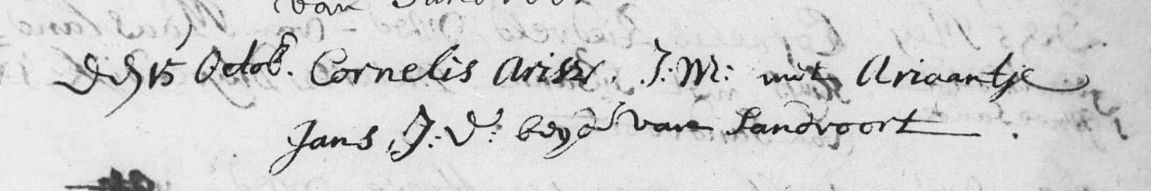 van Sandvoort
Den 15 Octob. Cornelis Arisz. J: M: met Ariaantje
Jans, J: d: beyde van Sandvoort.